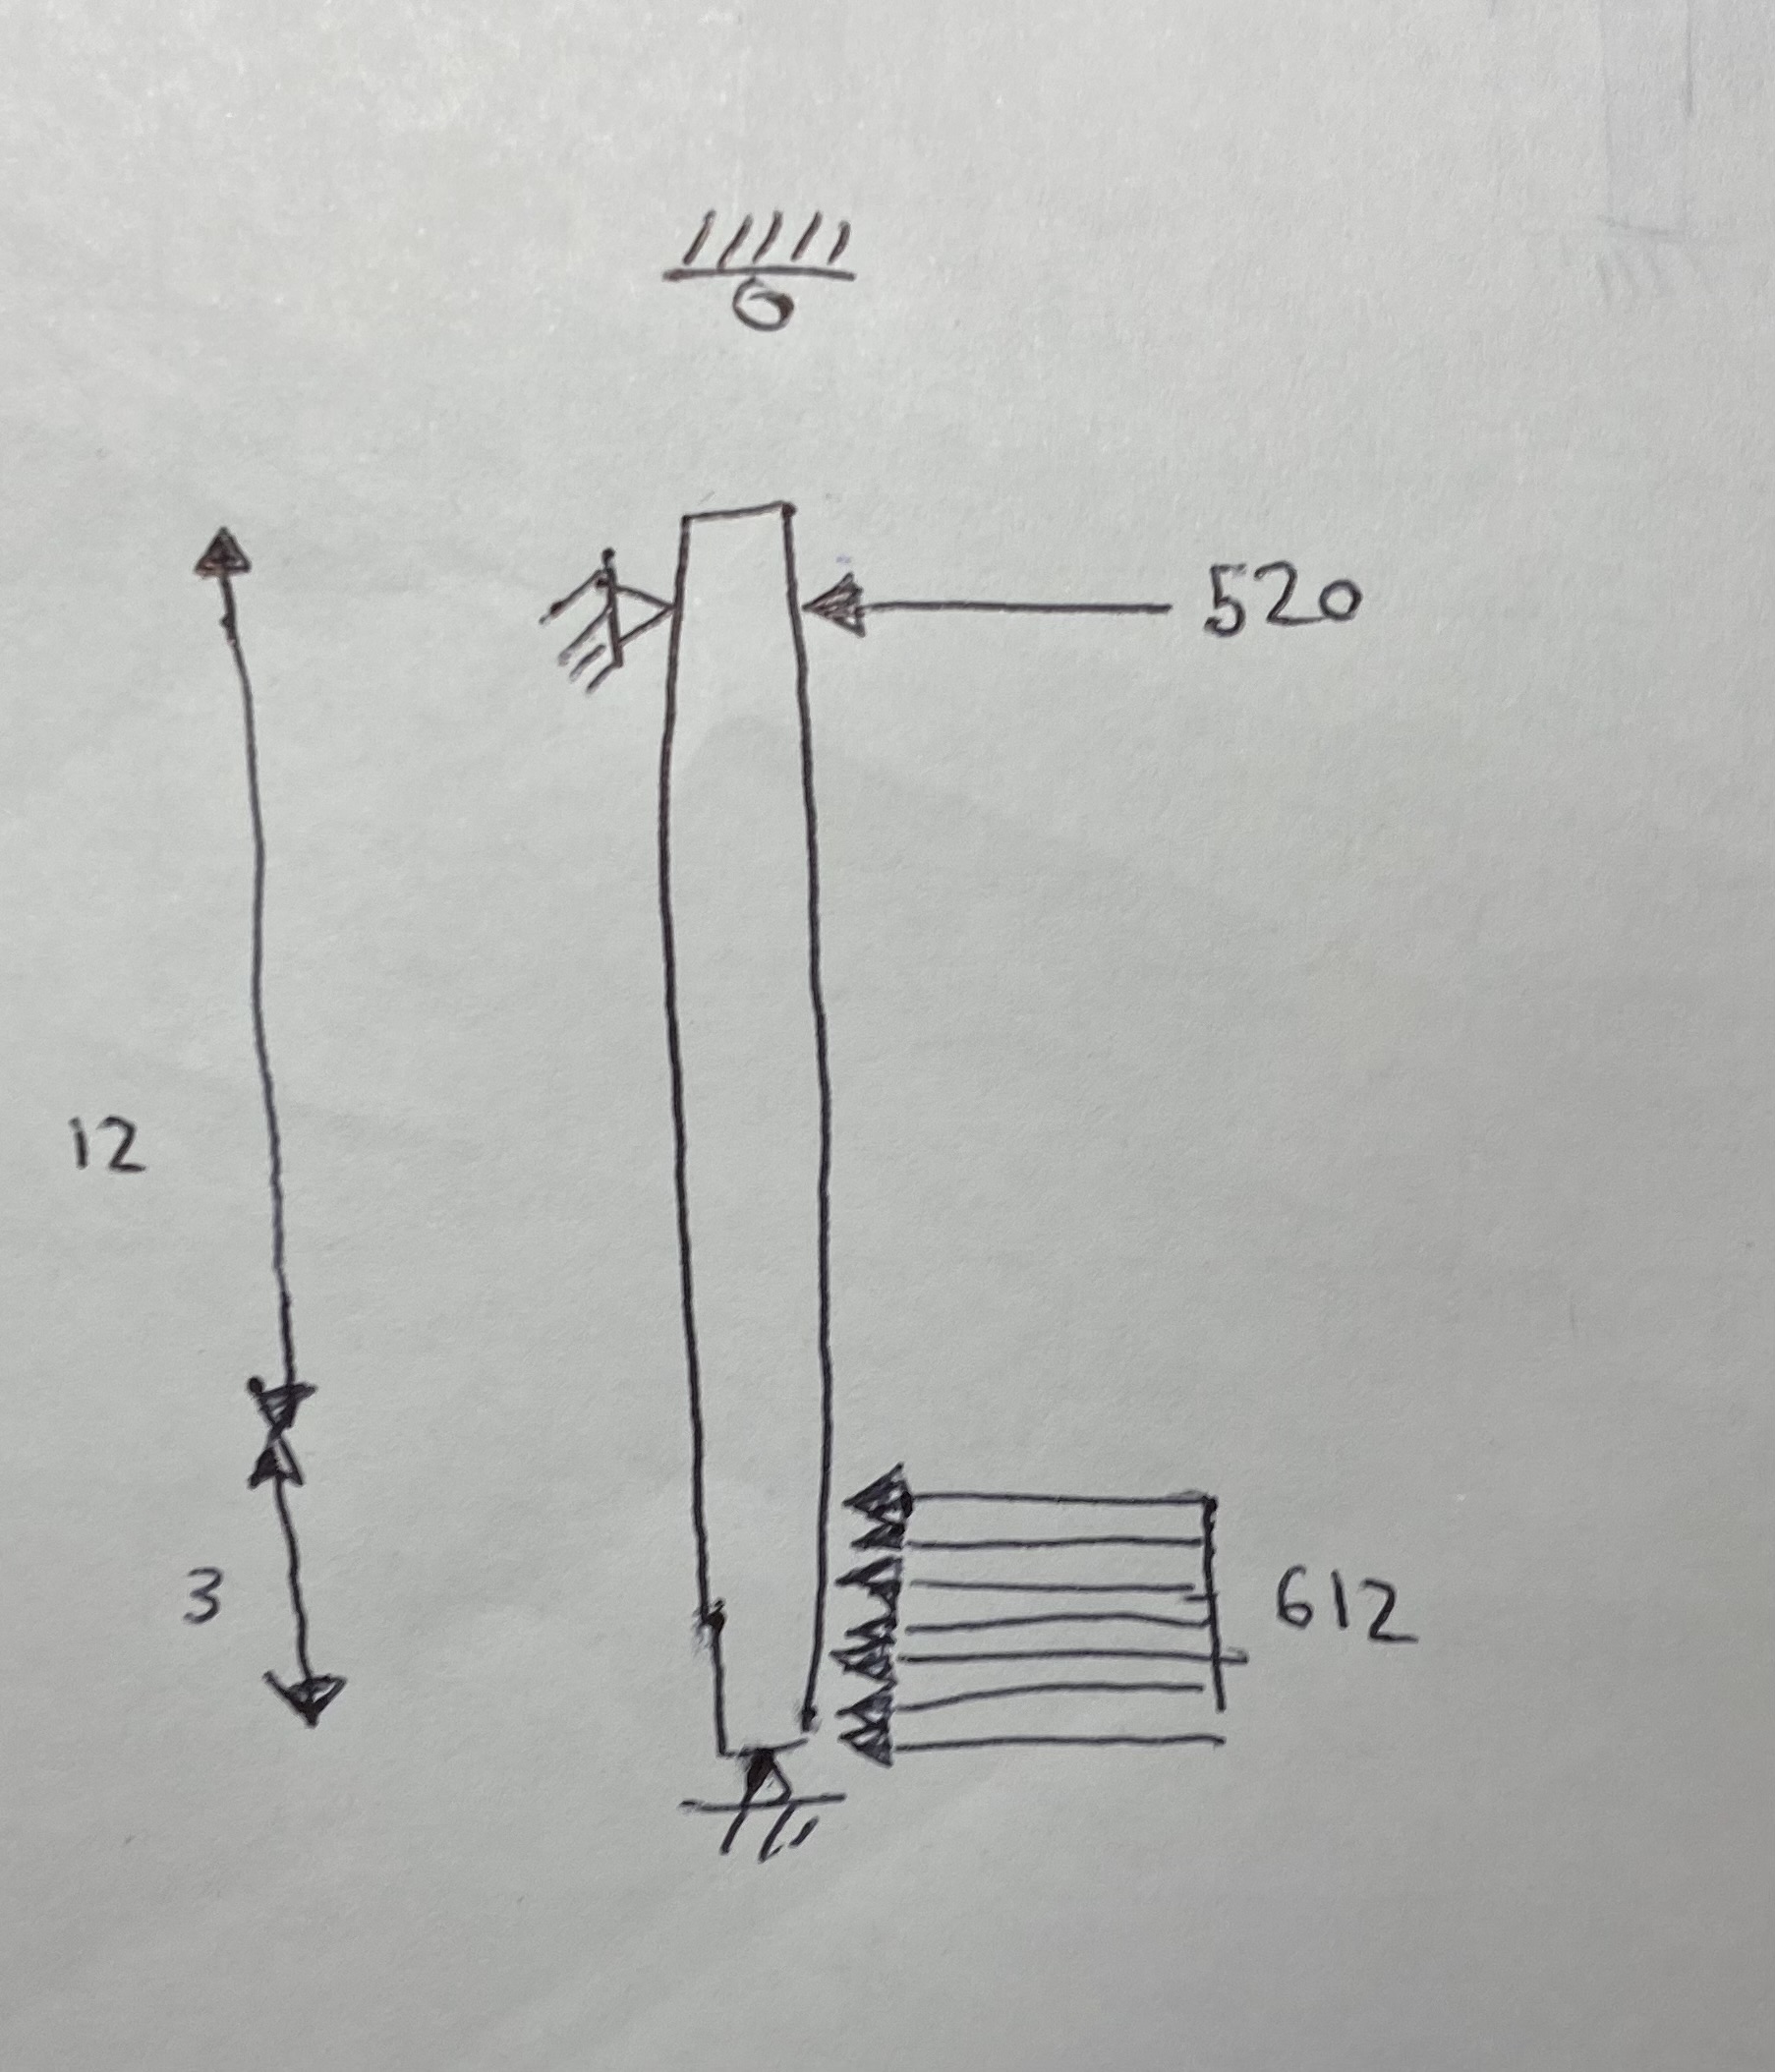 520
12
3
612